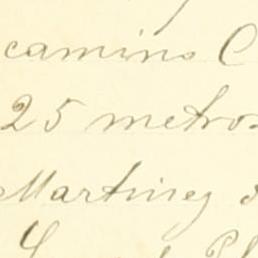 camino C
25 metros
Martinez d